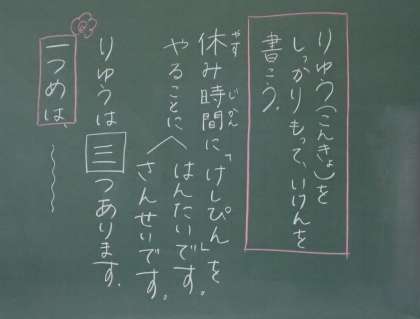 りゆう(こんきょ)を
しっかりもって、いけんを
書こう。
休み時間に「けしぴん」を
やす じかん
やることに
はんたいです。
さんせいです。
りゆうは 三 つあります。
一つめは、